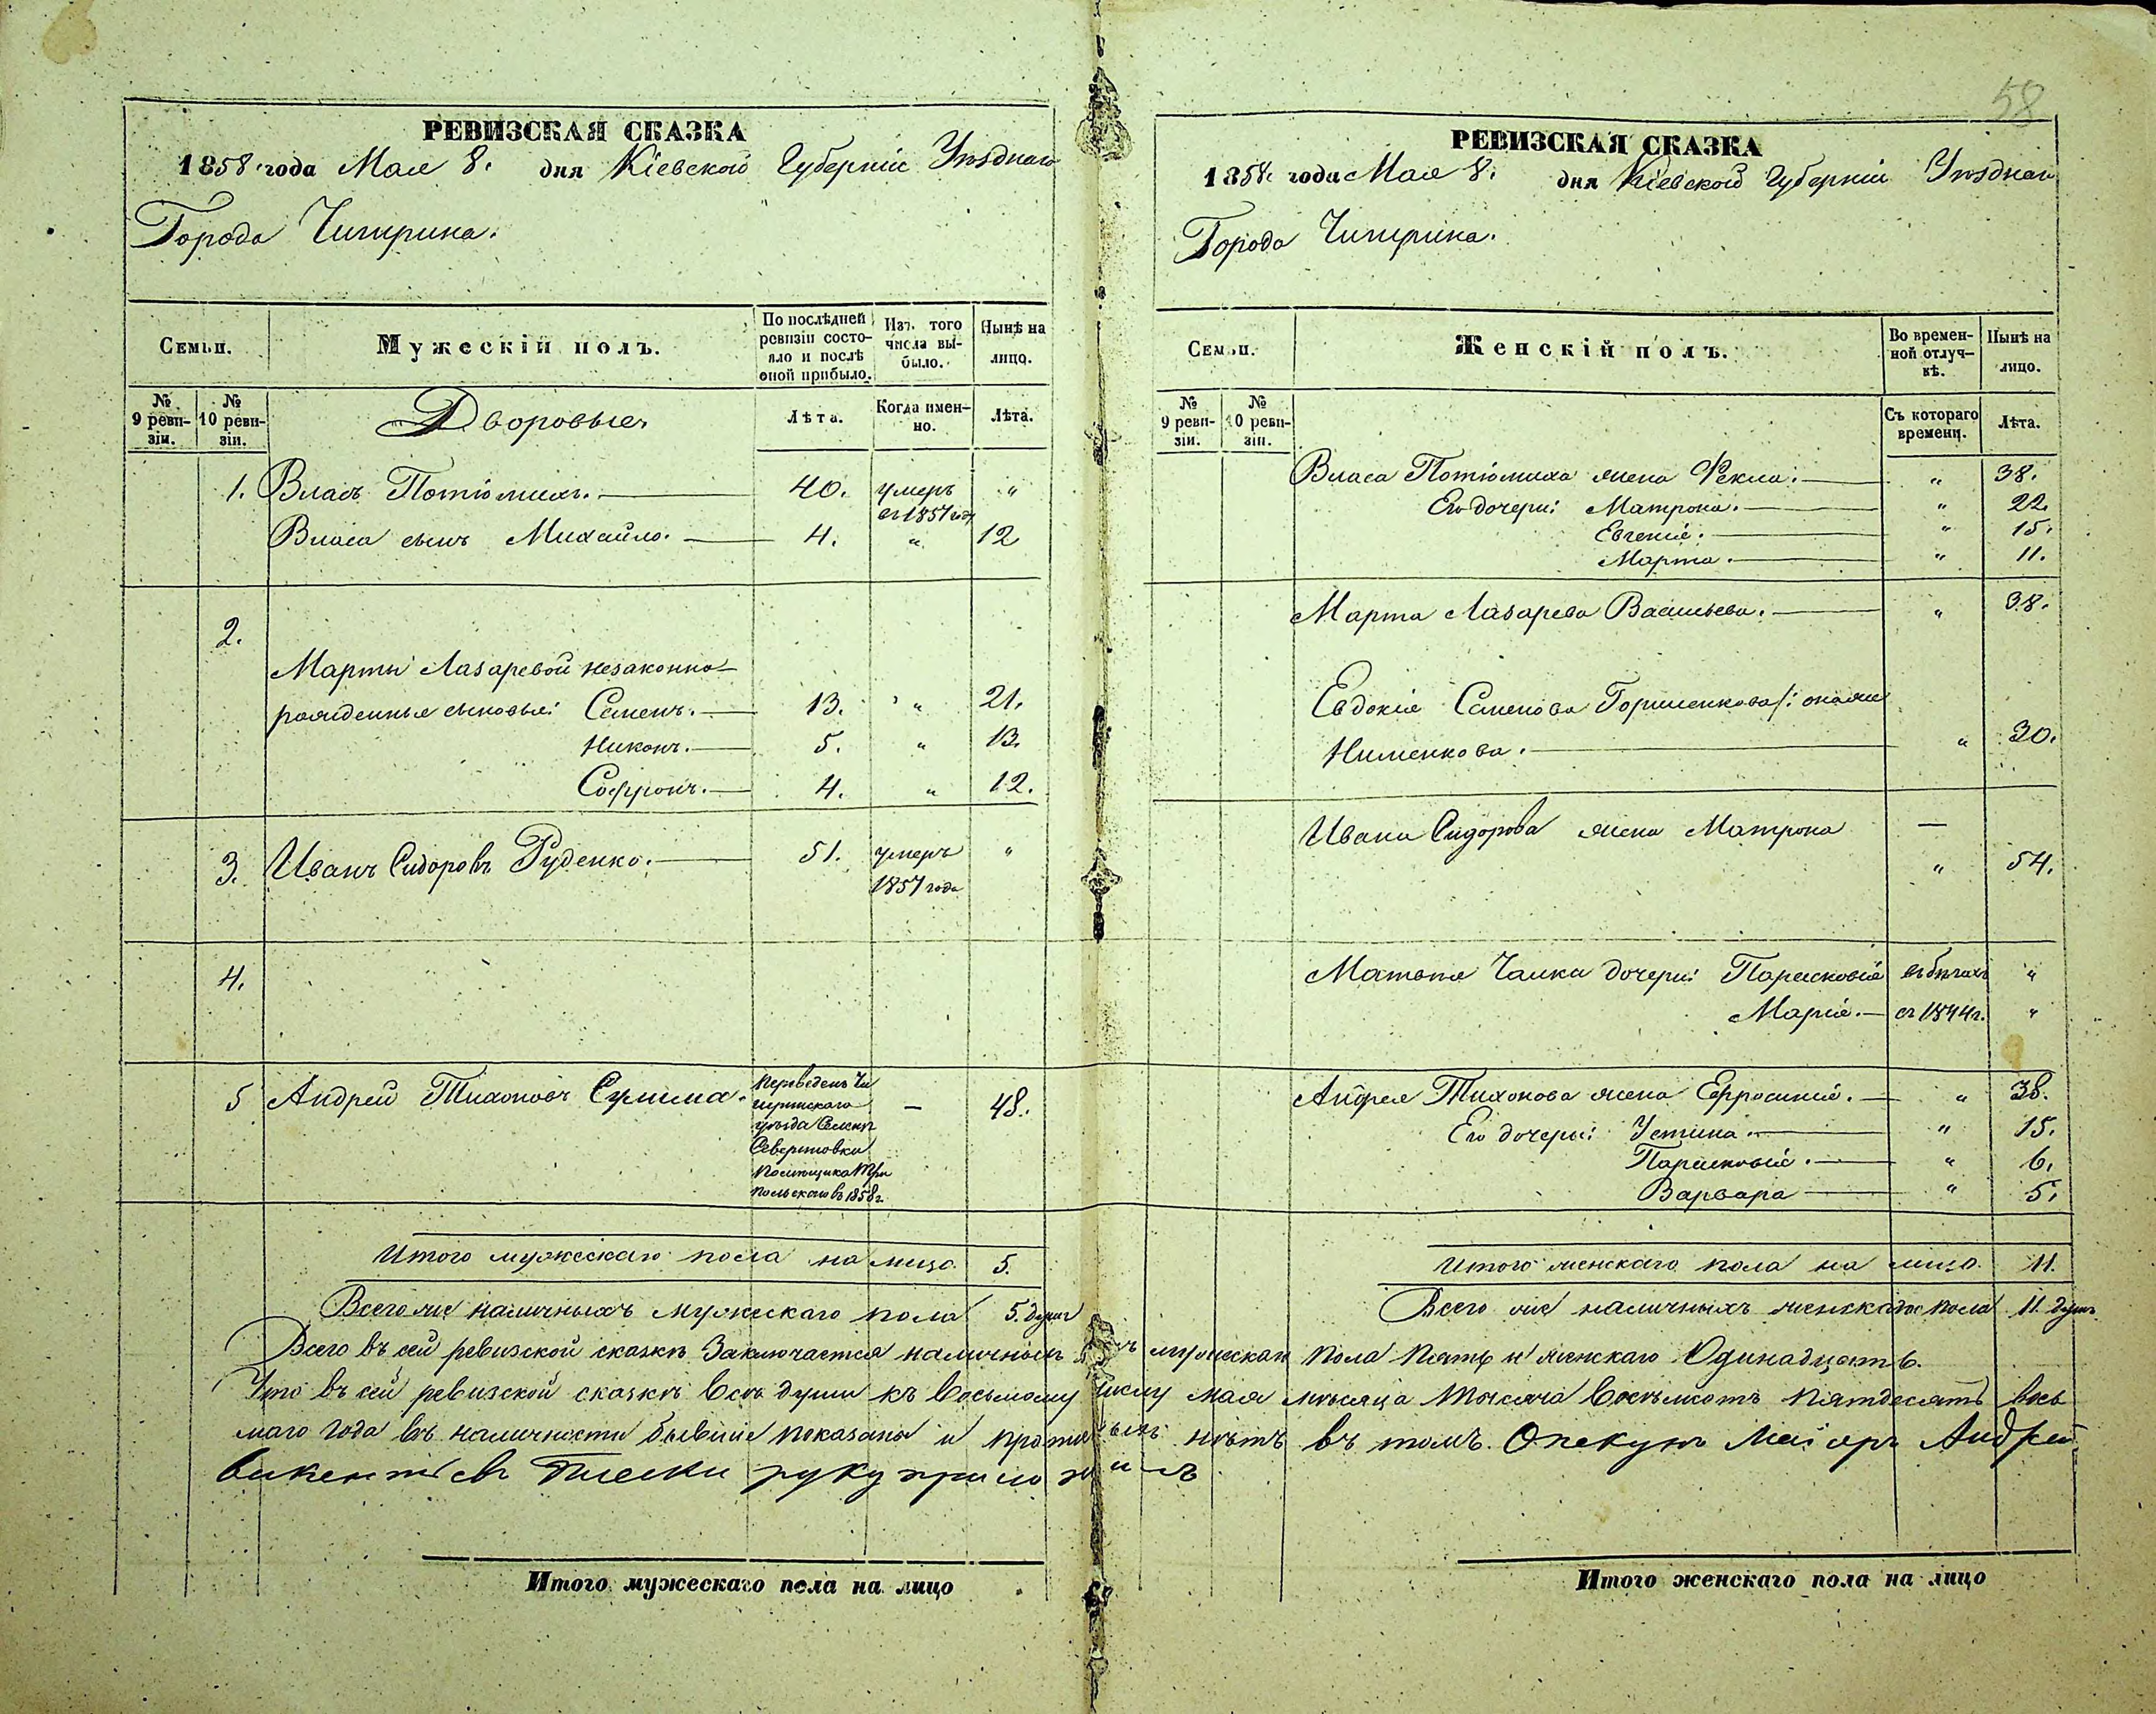 58
РЕВИЗСКАЯ СКАЗКА
1858 года Мая 8. дня Кіевской Губерніи Уѣзднаго
Города Чигирина.
Семьи.
Мужескій полъ.
По послѣдней ревизіи состояло и послѣ оной прибыло.
Изъ того числа выбыло.
Нынѣ на лицо.
№ 9 ревизіи.
№ 10 ревизіи.
Дворовые
Лѣта.
Когда именно.
Лѣта.
1. Власъ 40. умеръ "
въ 1857 году
Власа сынъ Михайло. 4. " 12
2.
Марты Лазаревой незаконно
рожденные сыновья: Семенъ. 13. " 21.
Никонъ. 5. " 13.
Софронъ. 4. " 12.
3. Иванъ Сидоровъ Руденко. 51. умеръ "
1857 года
4.
5 Андрей Тихоновъ Сулима. Переведенъ Чи — 48.
гиринскаго
уѣзда
помѣщика
въ 1858 г.
Итого мужескаго пола на лицо 5.
Всего же наличныхъ мужескаго пола 5. душъ
РЕВИЗСКАЯ СКАЗКА
1858 года Мая 8. дня Кіевской Губерніи Уѣзднаго
Города Чигирина.
Семьи.
Женскій полъ.
Во временной отлучкѣ.
Нынѣ на лицо.
№ 9 ревизіи.
№ 10 ревизіи.
Съ котораго времени.
Лѣта.
Власа жена Фекла. " 38.
Его дочери: Матрона. " 22.
Евгенія. " 15.
Марта. " 11.
Марта Лазарева Васильева. " 38.
Евдокія Семенова /: она же
" 30.
Ивана Сидорова жена Матрона —
" 54.
Матвѣя дочери: Парасковія въ бѣгахъ "
Марія. съ 1844 г. "
Андрея Тихонова жена Ефросинія. " 38.
Его дочери: Устина. " 15.
Парасковія. " 6.
Варвара " 5.
Итого женскаго пола на лицо. 11.
Всего же наличныхъ женскаго пола 11. душъ
Всего въ сей ревизской сказкѣ заключается наличныхъ душъ мужескаго пола пять и женскаго Одинадцать.
Что въ сей ревизской сказкѣ всѣ души къ восьмому числу мая мѣсяца тысяча восемьсотъ пятдесятъ вось
маго года въ наличности бывшіе показаны и нѣтъ въ томъ. Опекунъ Маіоръ Андрей
Викентіевъ руку приложилъ
Итого мужескаго пола на лицо
Итого женскаго пола на лицо